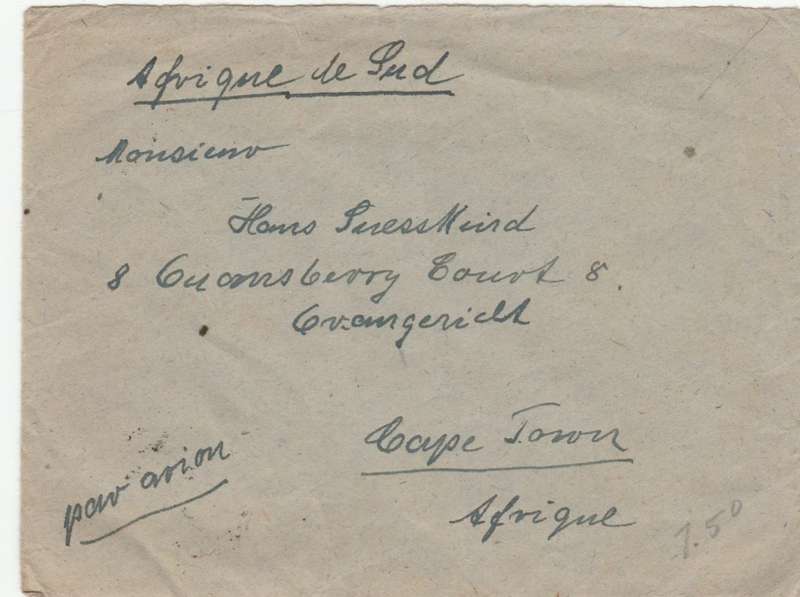 Afrique de Sud
Monsieur
Hans Suesskind
8 Cuansberry Court 8.
Orangezicht
Cape Town
Afrique
par avion
7.50